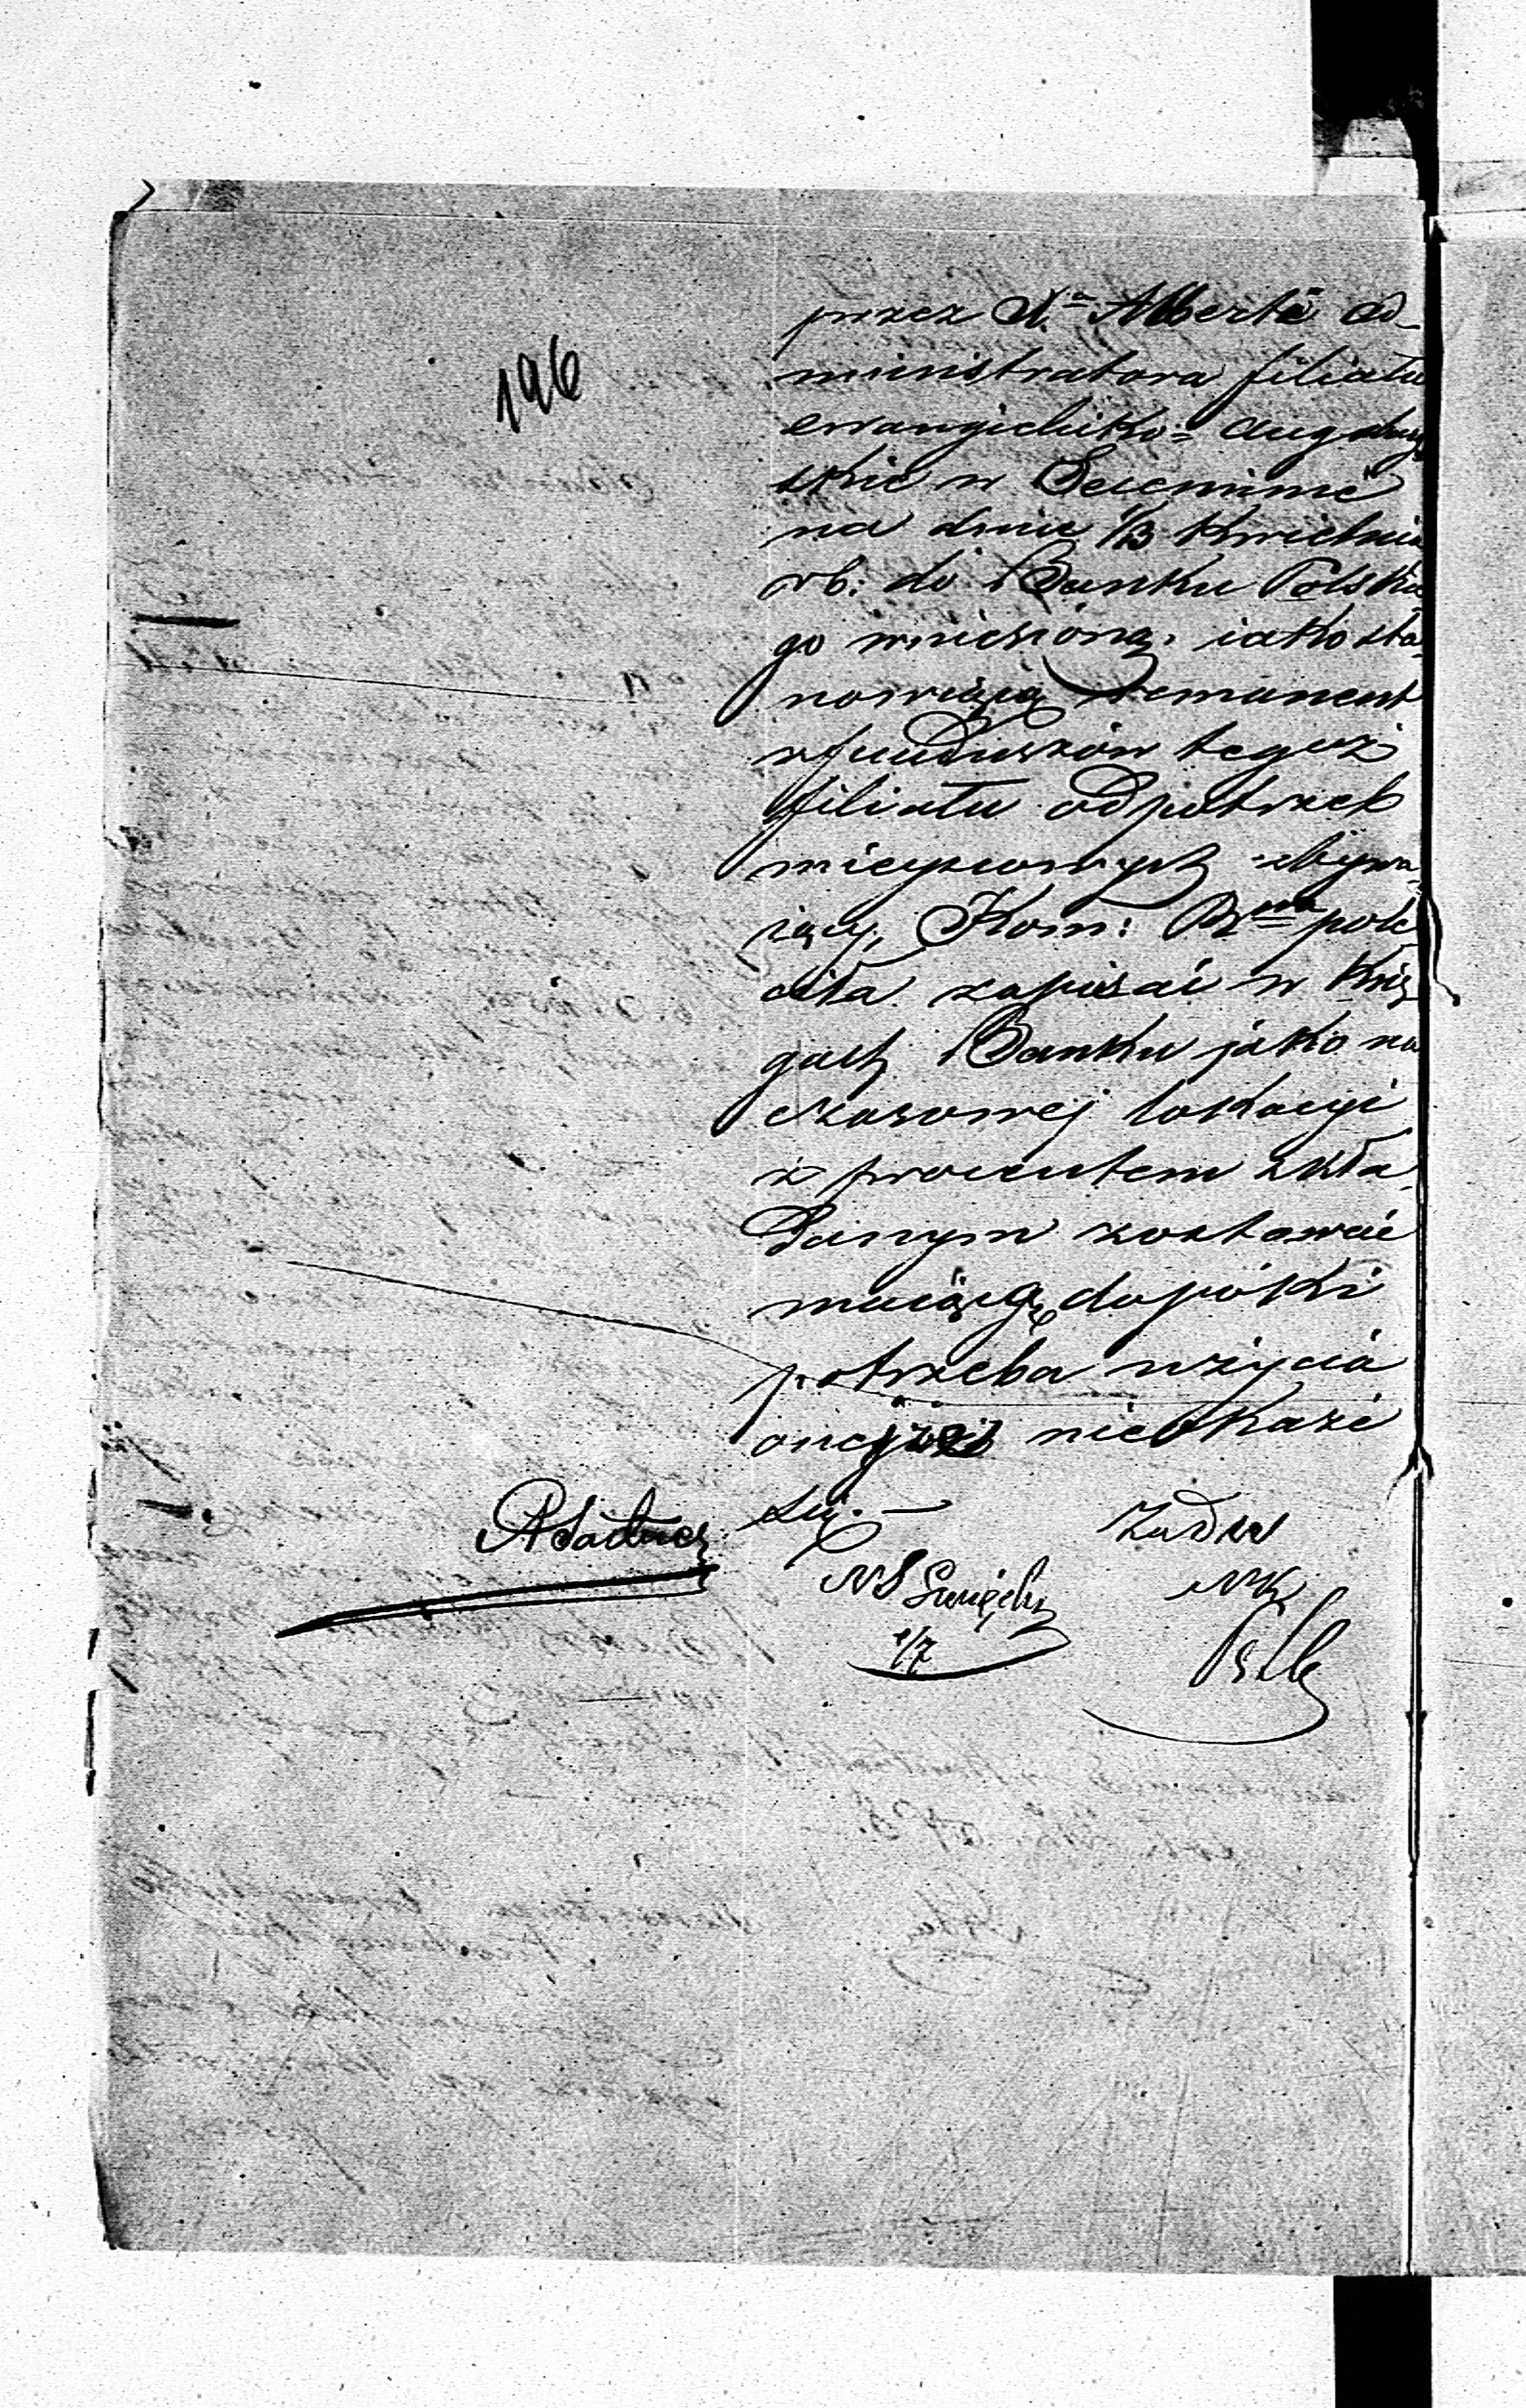 196
przez X.ª Alberta ad-
ministratora filiału
ewangielicko= augsburg
skie w Secyminie
na dniu 1/13 Kwietnia
rb: do Banku Polskie
go wniesioną, iako sta-
nowiącą remanent
w funduszów tegoż
filiału od potrzeb
mieyscowych zbywa-
iący, Kom: Rz^wa pole
ciła zapisać w Księ
gach Banku jako na
czasowej lokacyi
z procentem skła-
danym zostawać
maiącą dopóki
potrzeba użycia
onejże nieokaże
się. —